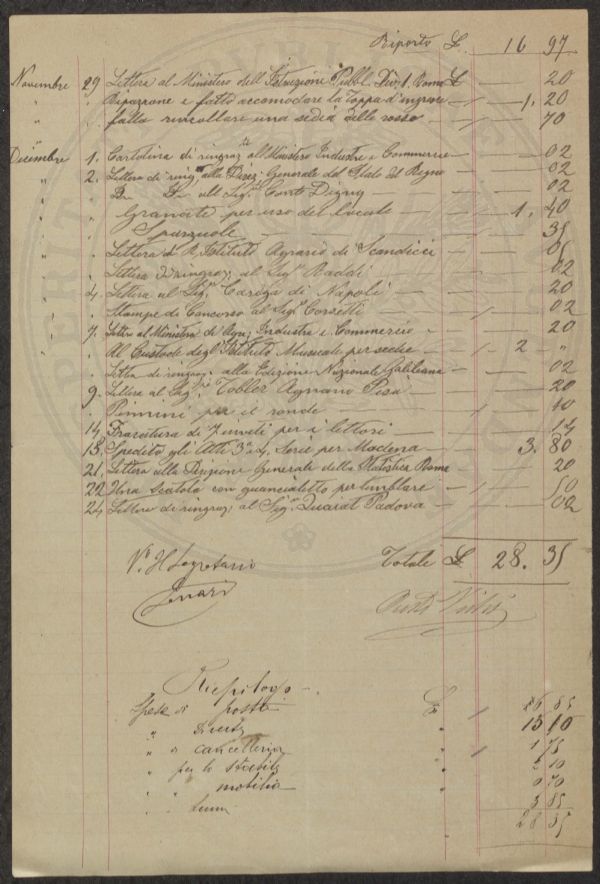 Riporto L. 16 97
Novembre 29 Lettera al Ministero dell'Istruzione Pubbl. Div. 1. Roma L — 20
" " Riparazione e fatto accomodare la toppa d'ingresso — 1. 20
" " fatto rincollare una sedia delle rosse — 70
Decembre 1. Cartolina di ringraz. al Ministero Industria e Commercio — 02
" 2. Lettera di ring. alla Direz. Generale del Stato del Regno — 02
al Sig. Conte Digny — 02
Granate per uso del locale — 1. 40
Spazzole — 35
Lettera R. Istituto Agrario di Scandicci — 05
Lettera di ringraz. al Sig. Raddi — 02
4. Lettera al Sig. Cariga di Napoli — 20
Stampe di Concorso al Sig. Corsetti — 02
7. Lett. al Ministero di Agri. Industria e Commercio — 20
Al Custode degl'Istituto Musicale per sedie — 2 "
Lettera di ringraz. alla Edizione Nazionale Galileiana — 02
9. Lettera al Sig. Tobler Agnano Pisa — 20
Pennini per il ronde — 10
14. di 7 per i lettori — 14
15. Spedito gli Atti 3a 4. Serie per Modena — 3. 80
21. Lettera alla Direzione Generale della Statistica Roma — 20
22. Una Scatola con guancialetto per timblare — 50
24. Lettera di ringraz. al Sig. Quarat Padova — 02
Vo. Il Segretario Totale L. 28. 35
Riepilogo
Spese di posta L.
" diverse 13 10
" di cancelleria 1 75
" per lo stabile 2 10
" " mobilia 0 70
" " lumi 3 85
28 35